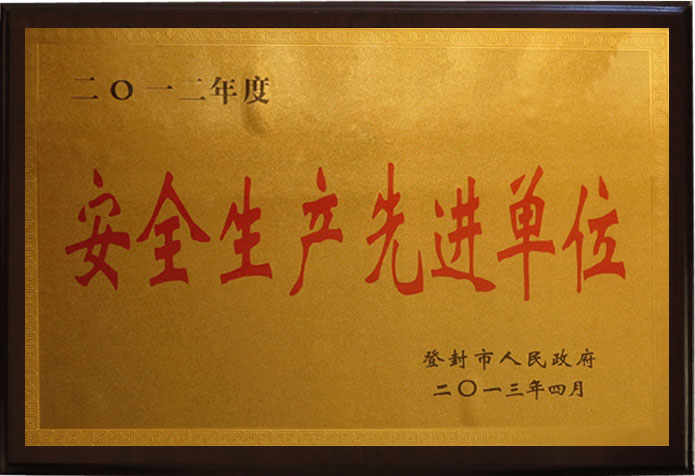 二〇一二年度
安全生产先进单位
登封市人民政府
二〇一三年四月